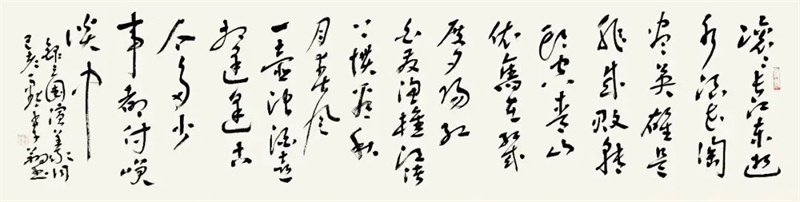 滚滚长江东逝
水浪花淘
尽英雄是
非成败转
头空青山
依旧在几
度夕阳红
白发渔樵江渚
上惯看秋
月春风
一壶浊酒喜
相逢逢古
今多少
事都付笑
谈中
录三国演义之词
己亥